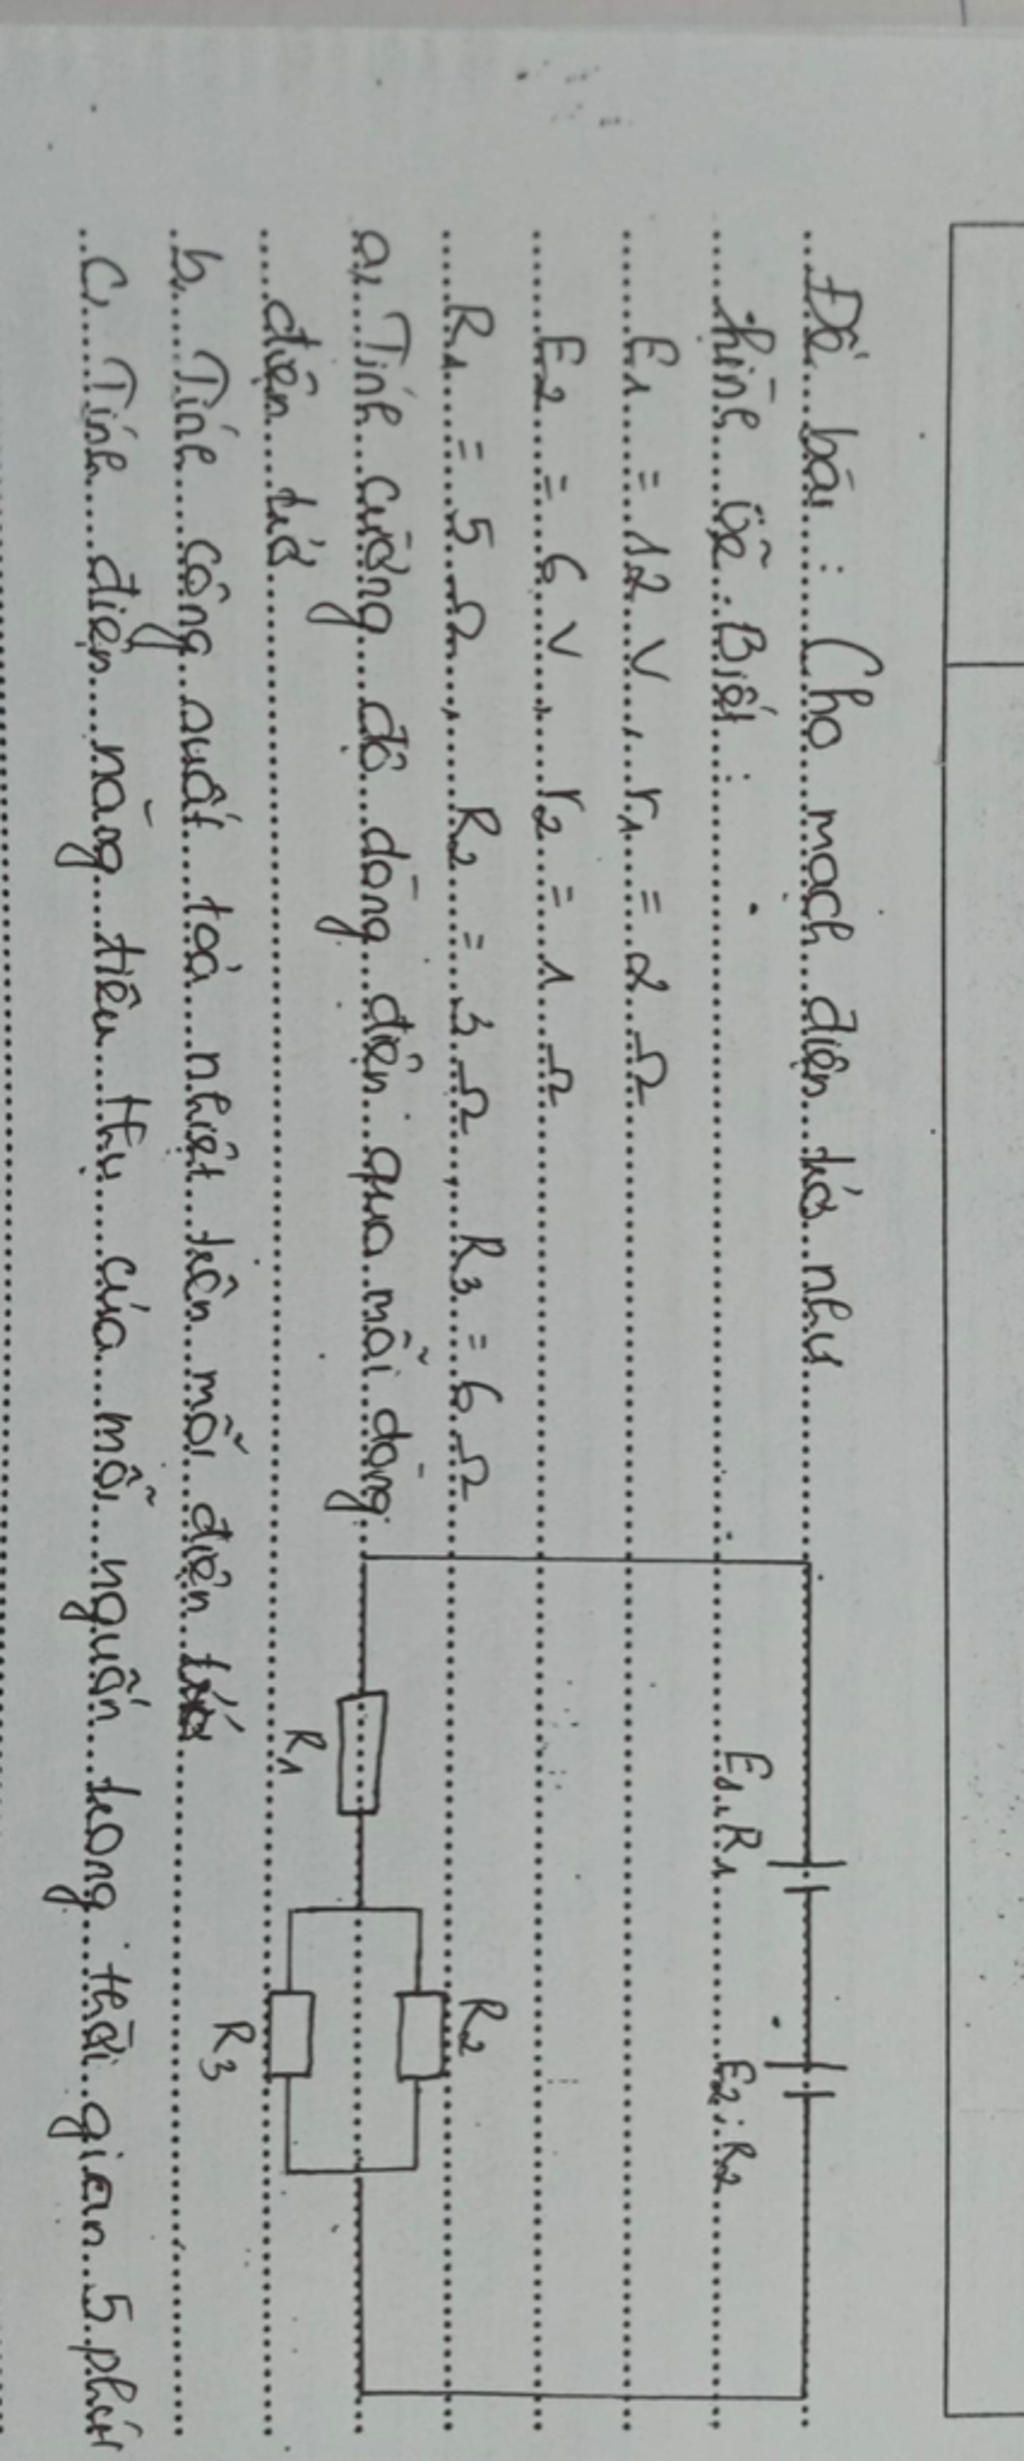 Đề bài : Cho mạch điện trở như
hình vẽ. Biết :
E1 = 12 V, r1 = 2 Ω
E2 = 6 V, r2 = 1 Ω
R1 = 5 Ω, R2 = 3 Ω, R3 = 6 Ω
a, Tính cường độ dòng điện qua mỗi dòng
điện trở
b, Tính công suất toả nhiệt trên mỗi điện trở
c, Tính điện năng tiêu thụ của mỗi nguồn trong thời gian 5 phút
E1, R1
E2, R2
R2
R1
R3